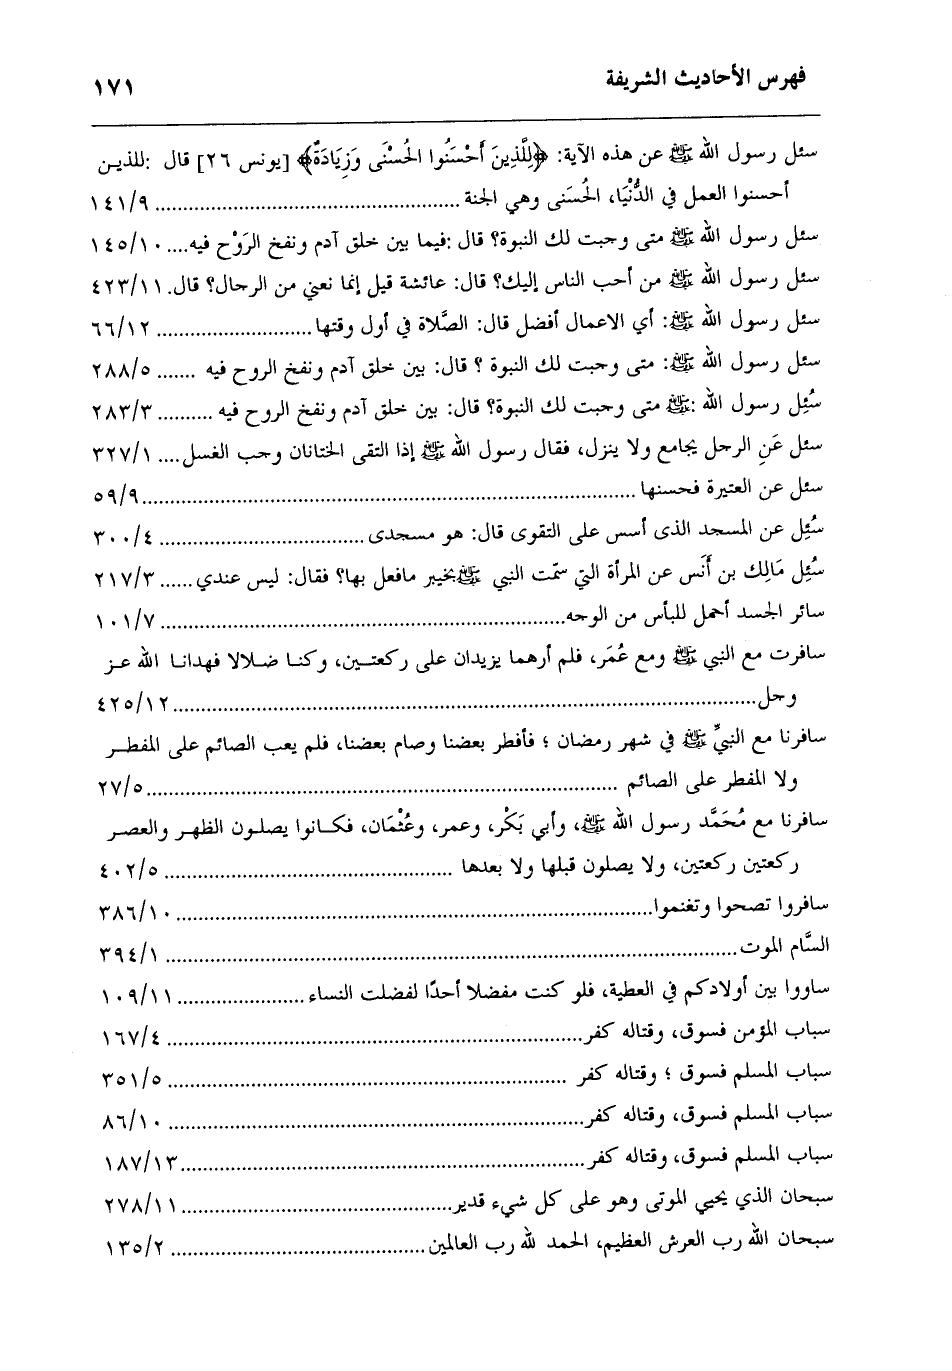 فهرس الأحاديث الشريفة ١٧١
سئل رسول الله ﷺ عن هذه الآية: ﴿لِلَّذِينَ أَحْسَنُوا الحُسْنَى وَزِيَادَةٌ﴾ [يونس ٢٦] قال :للذين
أحسنوا العمل في الدُّنْيَا، الحُسَنى وهي الجنة ................................................ ١٤١/٩
سئل رسول الله ﷺ متى وجبت لك النبوة؟ قال :فيما بين خلق آدم ونفخ الرَوْح فيه.... ١٤٥/١٠
سئل رسول الله ﷺ من أحب الناس إليك؟ قال: عائشة قيل إنما نعني من الرجال؟ قال. ٤٢٣/١١
سئل رسول الله ﷺ: أي الاعمال أفضل قال: الصَّلاة في أول وقتها............................ ٦٦/١٢
سئل رسول الله ﷺ: متى وجبت لك النبوة ؟ قال: بين خلق آدم ونفخ الروح فيه ....... ٢٨٨/٥
سُئِل رسول الله :ﷺ متى وجبت لك النبوة؟ قال: بين خلق آدم ونفخ الروح فيه .......... ٢٨٣/٣
سئل عَنِ الرجل يجامع ولا ينزل، فقال رسول الله ﷺ إذا التقى الختانان وجب الغسل.... ٣٢٧/١
سئل عن العتيرة فحسنها ................................................................................٥٩/٩
سُئِل عن المسجد الذى أسس على التقوى قال: هو مسجدى ................................. ٣٠٠/٤
سُئِل مَالِك بن أَنَس عن المرأة التي سمّت النبي ﷺبخيبر مافعل بها؟ فقال: ليس عندي ...... ٢١٧/٣
سائر الجسد أحمل للبأس من الوجه................................................................. ١٠١/٧
سافرت مع النبي ﷺ ومع عُمَر، فلم أرهما يزيدان على ركعتين، وكنا ضلالا فهدانا الله عز
وجل...............................................................................................٤٢٥/١٢
سافرنا مع النبيِّ ﷺ في شهر رمضان ؛ فأفطر بعضنا وصام بعضنا، فلم يعب الصائم على المفطر
ولا المفطر على الصائم ............................................................................٢٧/٥
سافرنا مع مُحَمَّد رسول الله ﷺ، وأبي بَكْر، وعمر، وعُثْمَان، فكانوا يصلون الظهر والعصر
ركعتين ركعتين، ولا يصلون قبلها ولا بعدها ................................................ ٤٠٢/٥
سافروا تصحوا وتغنموا............................................................................. ٣٨٦/١٠
السَّام الموت............................................................................................ ٣٩٤/١
ساووا بين أولادكم في العطية، فلو كنت مفضلا أحدًا لفضلت النساء ....................١٠٩/١١
سباب المؤمن فسوق، وقتاله كفر................................................................... ١٦٧/٤
سباب المسلم فسوق ؛ وقتاله كفر ................................................................ ٣٥١/٥
سباب المسلم فسوق، وقتاله كفر................................................................... ٨٦/١٠
سباب المسلم فسوق، وقتاله كفر.................................................................١٨٧/١٣
سبحان الذي يحيي الموتى وهو على كل شيء قدير............................................٢٧٨/١١
سبحان الله رب العرش العظيم، الحمد لله رب العالمين......................................... ١٣٥/٢